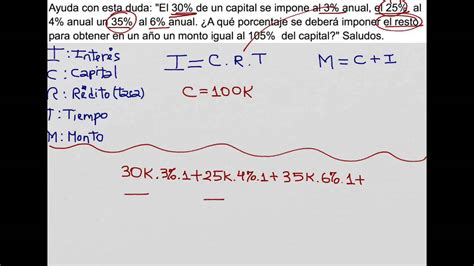 Ayuda con esta duda: "El 30% de un capital se impone al 3% anual, el 25% al
4% anual un 35% al 6% anual. ¿A qué porcentaje se deberá imponer el resto
para obtener en un año un monto igual al 105% del capital?" Saludos.
I: Interés
C: Capital
R: Rédito (tasa)
T: Tiempo
M: Monto
I = C.R.T
M = C + I
C = 100K
30K.3%.1+25K.4%.1+35K.6%.1+